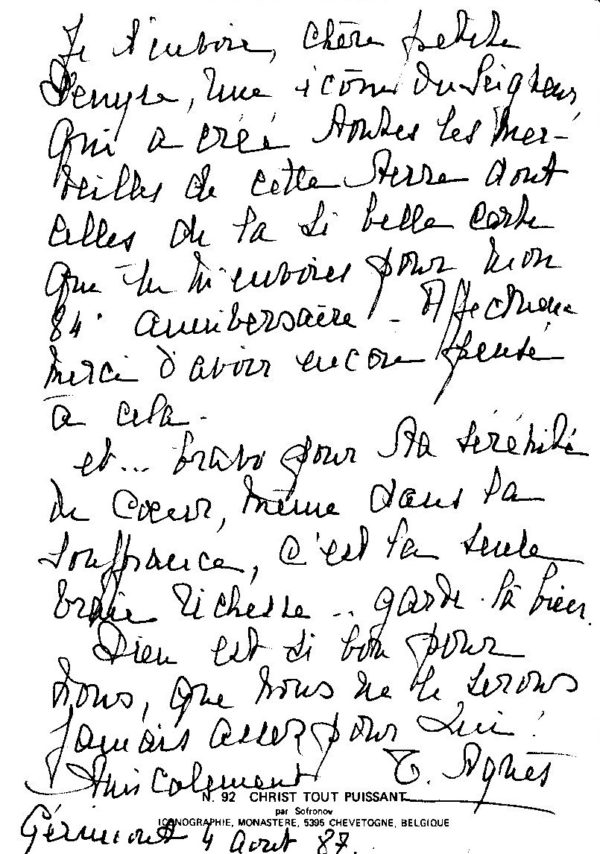 Je t'envoie, chère petite
Denyse, une icône du Seigneur,
qui a créé toutes les mer-
veilles de cette terre dont
celles de la si belle carte
que tu m'envoies pour mon
84e anniversaire - Affectueux
merci d'avoir encore pensé
à cela.
et... bravo pour ta sérénité
du Coeur, même dans la
souffrance, c'est la seule
vraie richesse .. garde-là bien.
Dieu est si bon pour
nous, que nous ne le serons
jamais assez pour Lui!
Amicalement T. Agnès
N. 92 CHRIST TOUT PUISSANT
par Sofronov
ICONOGRAPHIE, MONASTERE, 5395 CHEVETOGNE, BELGIQUE
4 Août 87.